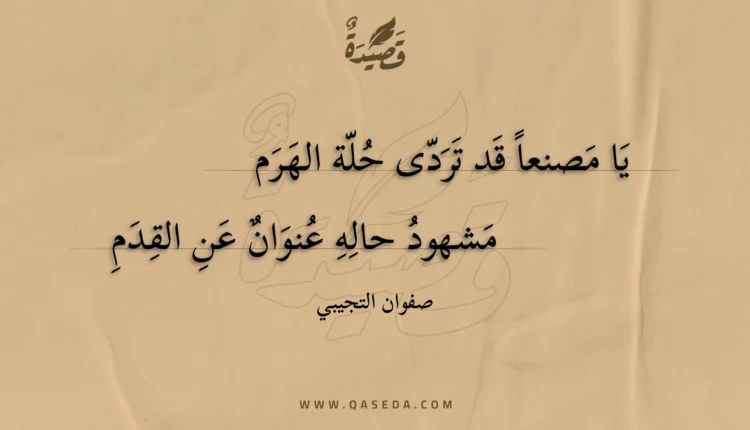 قَصِيْدَةٌ
يَا مَصنعاً قَد تَرَدّى حُلّة الهَرَم
مَشهودُ حالِهِ عُنوَانٌ عَنِ القِدَمِ
صفوان التجيبي
WWW.QASEDA.COM